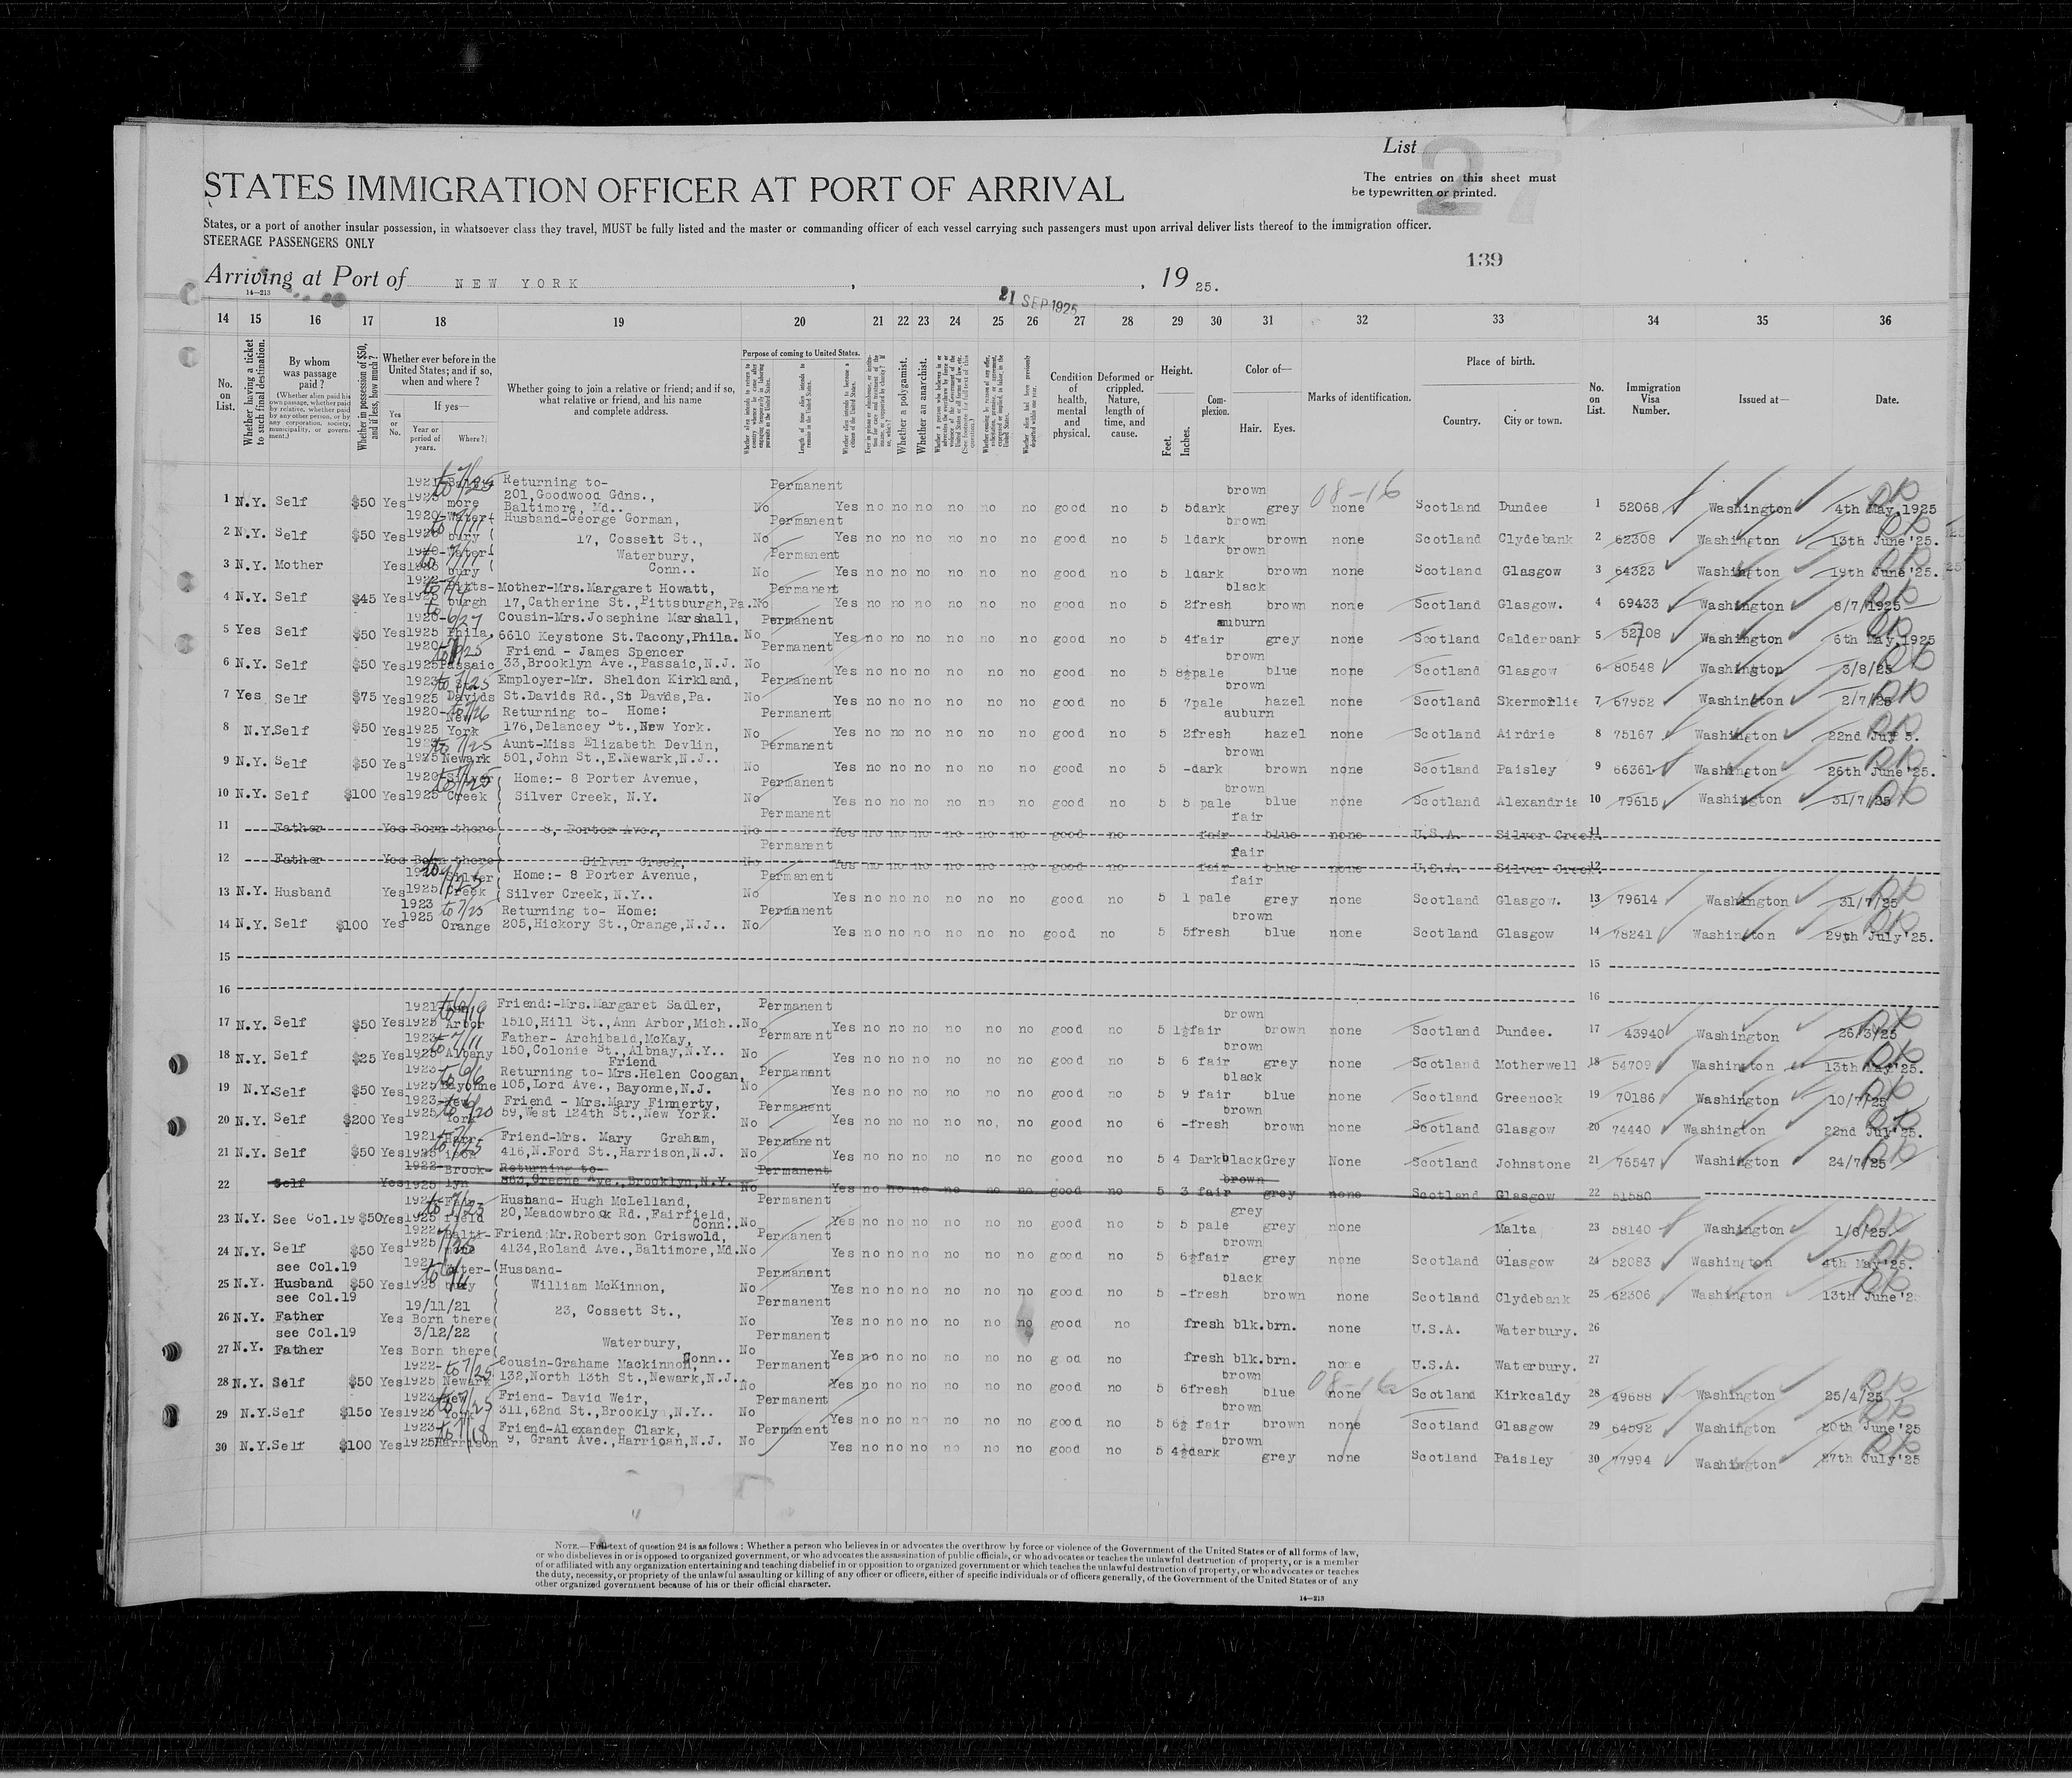 List 27
STATES IMMIGRATION OFFICER AT PORT OF ARRIVAL
The entries on this sheet must
be typewritten or printed.
States, or a port of another insular possession, in whatsoever class they travel, MUST be fully listed and the master or commanding officer of each vessel carrying such passengers must upon arrival deliver lists thereof to the immigration officer.
STEERAGE PASSENGERS ONLY
139
Arriving at Port of NEW YORK, , 19 25.
14—213
21 SEP 1925
14 15 16 17 18 19 20 21 22 23 24 25 26 27 28 29 30 31 32 33 34 35 36
No. on List.
Whether having a ticket to such final destination.
By whom was passage paid?
(Whether alien paid his own passage, whether paid by relative, whether paid by any other person, or by any corporation, society, municipality, or government.)
Whether in possession of $50, and if less, how much?
Whether ever before in the United States; and if so, when and where?
Yes or No.
If yes—
Year or period of years.
Where?
Whether going to join a relative or friend; and if so, what relative or friend, and his name and complete address.
Purpose of coming to United States.
Whether a polygamist.
Whether an anarchist.
Condition of health, mental and physical.
Deformed or crippled. Nature, length of time, and cause.
Height.
Feet. Inches.
Complexion.
Color of—
Hair. Eyes.
Marks of identification.
Place of birth.
Country. City or town.
No. on List.
Immigration Visa Number.
Issued at—
Date.
1 N.Y. Self $50 Yes 1921- 1925 Baltimore Returning to- 201, Goodwood Gdns., Baltimore, Md.. No Permanent Yes no no no no no no good no 5 5 dark brown grey none Scotland Dundee 1 52068 Washington 4th May, 1925
2 N.Y. Self $50 Yes 1920- 1925 Waterbury Husband-George Gorman, 17, Cossett St., No Permanent Yes no no no no no no good no 5 1 dark brown brown none Scotland Clydebank 2 62308 Washington 13th June '25.
3 N.Y. Mother Yes Waterbury Waterbury, Conn.. No Permanent Yes no no no no no no good no 5 1 dark brown brown none Scotland Glasgow 3 64323 Washington 19th June '25.
4 N.Y. Self $45 Yes 1922- 1925 Pittsburgh Mother-Mrs.Margaret Howatt, 17, Catherine St., Pittsburgh, Pa. No Permanent Yes no no no no no no good no 5 2 fresh black brown none Scotland Glasgow. 4 69433 Washington 8/7/1925
5 Yes Self $50 Yes 1920- 1925 Phila. Cousin-Mrs.Josephine Marshall, 6610 Keystone St.Tacony, Phila. No Permanent Yes no no no no no no good no 5 4 fair auburn grey none Scotland Calderbank 5 52108 Washington 6th May, 1925
6 N.Y. Self $50 Yes 1920- 1925 Passaic Friend - James Spencer 33, Brooklyn Ave., Passaic, N.J. No Permanent Yes no no no no no no good no 5 8½ pale brown blue none Scotland Glasgow 6 80548 Washington 3/8/25
7 Yes Self $75 Yes 1923 1925 St. Davids Employer-Mr. Sheldon Kirkland, St.Davids Rd., St Davids, Pa. No Permanent Yes no no no no no no good no 5 7 pale brown hazel none Scotland Skermorlie 7 67952 Washington 2/7/25
8 N.Y. Self $50 Yes 1920- 1925 New York Returning to- Home: 176, Delancey St., New York. No Permanent Yes no no no no no no good no 5 2 fresh auburn hazel none Scotland Airdrie 8 75167 Washington 22nd July 5.
9 N.Y. Self $50 Yes 1925 Newark Aunt-Miss Elizabeth Devlin, 501, John St., E.Newark, N.J.. No Permanent Yes no no no no no no good no 5 - dark brown brown none Scotland Paisley 9 66361 Washington 26th June '25.
10 N.Y. Self $100 Yes 1920- 1925 Silver Creek Home:- 8 Porter Avenue, Silver Creek, N.Y. No Permanent Yes no no no no no no good no 5 5 pale brown blue none Scotland Alexandria 10 79615 Washington 31/7/25
11 Father Yes Born there 8, Porter Ave., No Permanent Yes no no no no no no good no fair fair blue none U.S.A. Silver Creek. 11
12 Father Yes Born there Silver Creek, No Permanent Yes no no no no no no good no fair fair blue none U.S.A. Silver Creek. 12
13 N.Y. Husband Yes 1925 Silver Creek Home:- 8 Porter Avenue, Silver Creek, N.Y.. No Permanent Yes no no no no no no good no 5 1 pale fair grey none Scotland Glasgow. 13 79614 Washington 31/7/25
14 N.Y. Self $100 Yes 1923 1925 Orange Returning to- Home: 205, Hickory St., Orange, N.J.. No Permanent Yes no no no no no no good no 5 5 fresh brown blue none Scotland Glasgow 14 78241 Washington 29th July '25.
15 15
16 16
17 N.Y. Self $50 Yes 1921- 1925 Ann Arbor Friend:-Mrs.Margaret Sadler, 1510, Hill St., Ann Arbor, Mich.. No Permanent Yes no no no no no no good no 5 1½ fair brown brown none Scotland Dundee. 17 43940 Washington 26/3/25
18 N.Y. Self $25 Yes 1923- 1925 Albany Father- Archibald, McKay, 150, Colonie St., Albnay, N.Y.. No Permanent Yes no no no no no no good no 5 6 fair brown grey none Scotland Motherwell 18 54709 Washington 13th May '25.
19 N.Y. Self $50 Yes 1923- 1925 Bayonne Returning to- Friend Mrs.Helen Coogan, 105, Lord Ave., Bayonne, N.J. No Permanent Yes no no no no no no good no 5 9 fair black blue none Scotland Greenock 19 70186 Washington 10/7/25
20 N.Y. Self $200 Yes 1923- 1925 New York Friend - Mrs.Mary Finnerty, 59, West 124th St., New York. No Permanent Yes no no no no no no good no 6 - fresh brown brown none Scotland Glasgow 20 74440 Washington 22nd July '25.
21 N.Y. Self $50 Yes 1921- 1925 Harrison Friend-Mrs. Mary Graham, 416, N.Ford St., Harrison, N.J. No Permanent Yes no no no no no no good no 5 4 Dark black Grey None Scotland Johnstone 21 76547 Washington 24/7/25
22 Self Yes 1922- 1925 Brooklyn Returning to- 863, Greene Ave., Brooklyn, N.Y. No Permanent Yes no no no no no no good no 5 3 fair brown grey none Scotland Glasgow 22 51580
23 N.Y. See Col.19 $50 Yes 1925 Fairfield Husband- Hugh McLelland, 20, Meadowbrook Rd., Fairfield, Conn.. No Permanent Yes no no no no no no good no 5 5 pale grey grey none Malta 23 58140 Washington 1/6/25.
24 N.Y. Self $50 Yes 1922- 1925 Baltimore Friend Mr.Robertson Griswold, 4134, Roland Ave., Baltimore, Md. No Permanent Yes no no no no no no good no 5 6½ fair brown grey none Scotland Glasgow 24 52083 Washington 4th May '25.
25 N.Y. see Col.19 Husband $50 Yes 1921- 1925 Waterbury Husband- William McKinnon, No Permanent Yes no no no no no no good no 5 - fresh black brown none Scotland Clydebank 25 62306 Washington 13th June '2
26 N.Y. see Col.19 Father Yes 19/11/21 Born there 23, Cossett St., No Permanent Yes no no no no no no good no fresh blk. brn. none U.S.A. Waterbury. 26
27 N.Y. see Col.19 Father Yes 3/12/22 Born there Waterbury, Conn.. No Permanent Yes no no no no no no g od no fresh blk. brn. none U.S.A. Waterbury. 27
28 N.Y. Self $50 Yes 1922- 1925 Newark Cousin-Grahame Mackinnon, 132, North 13th St., Newark, N.J.. No Permanent Yes no no no no no no good no 5 6 fresh brown blue none Scotland Kirkcaldy 28 49688 Washington 25/4/25
29 N.Y. Self $150 Yes 1923 1925 New York Friend- David Weir, 311, 62nd St., Brookly , N.Y.. No Permanent Yes no no no no no no good no 5 6½ fair brown brown none Scotland Glasgow 29 64592 Washington 20th June '25
30 N.Y. Self $100 Yes 1923- 1925 Harrison Friend-Alexander Clark, 9, Grant Ave., Harrigan, N.J. No Permanent Yes no no no no no no good no 5 4½ dark brown grey none Scotland Paisley 30 77994 Washington 27th July '25
NOTE.—Full text of question 24 is as follows: Whether a person who believes in or advocates the overthrow by force or violence of the Government of the United States or of all forms of law,
or who disbelieves in or is opposed to organized government, or who advocates the assassination of public officials, or who advocates or teaches the unlawful destruction of property, or is a member
of or affiliated with any organization entertaining and teaching disbelief in or opposition to organized government or which teaches the unlawful destruction of property, or who advocates or teaches
the duty, necessity, or propriety of the unlawful assaulting or killing of any officer or officers, either of specific individuals or of officers generally, of the Government of the United States or of any
other organized government because of his or their official character.
14—213